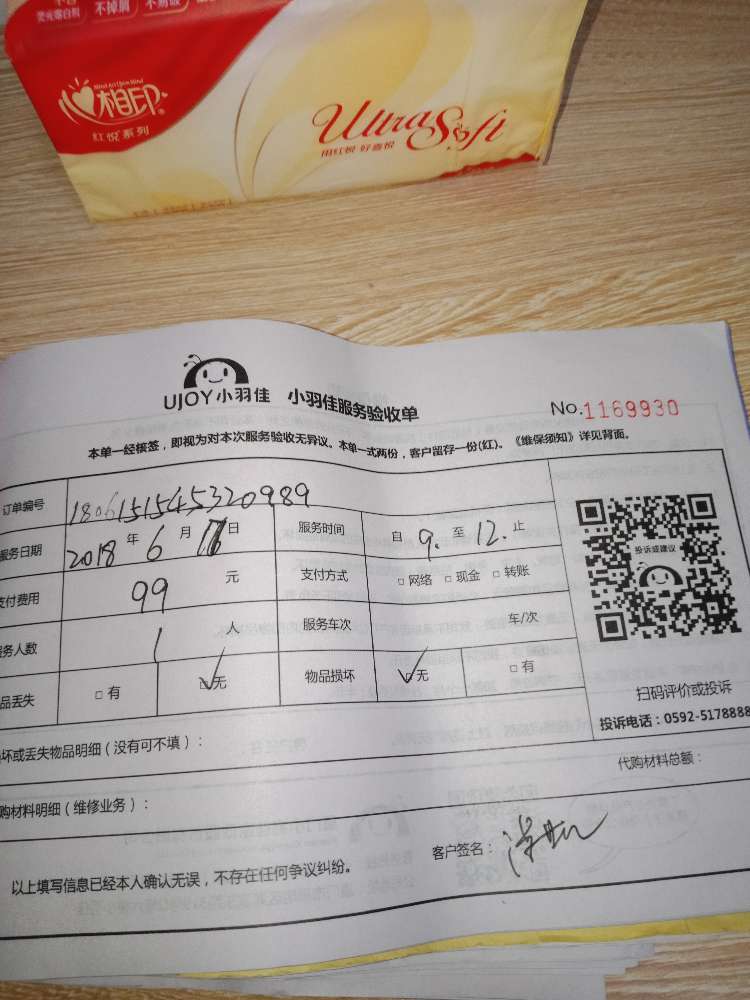 荧光增白剂 不掉屑 不易破
Mind Act Upon Mind
心相印®
红悦系列
Ultra Soft
用红悦 好喜悦
UJOY小羽佳 小羽佳服务验收单
No.1169930
本单一经核签，即视为对本次服务验收无异议。本单一式两份，客户留存一份(红)。《维保须知》详见背面。
订单编号 1806151545320989
服务日期 2018 年 6 月 日 服务时间 自 9. 至 12. 止
支付费用 99 元 支付方式 □网络 □现金 □转账
务人数 1 人 服务车次 车/次
品丢失 □有 □无 物品损坏 □无 □有
投诉或建议
扫码评价或投诉
投诉电话：0592-5178888
坏或丢失物品明细（没有可不填）：
代购材料总额：
购材料明细（维修业务）：
以上填写信息已经本人确认无误，不存在任何争议纠纷。
客户签名：